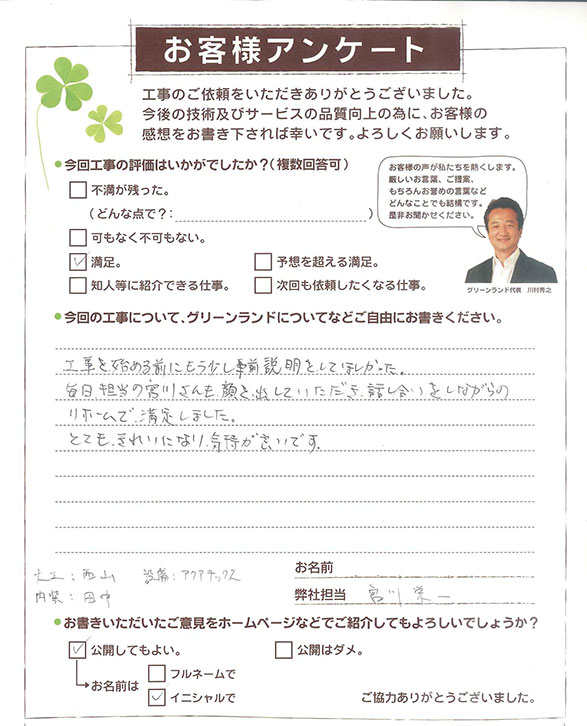 お客様アンケート
工事のご依頼をいただきありがとうございました。
今後の技術及びサービスの品質向上の為に、お客様の
感想をお書き下されば幸いです。よろしくお願いします。
今回工事の評価はいかがでしたか？（複数回答可）
不満が残った。
（どんな点で？：　）
可もなく不可もない。
満足。
予想を超える満足。
知人等に紹介できる仕事。
次回も依頼したくなる仕事。
お客様の声が私たちを熱くします。
厳しいお言葉、ご提案、
もちろんお誉めの言葉など
どんなことでも結構です。
是非お聞かせください。
グリーンランド代表　川村秀之
今回の工事について、グリーンランドについてなどご自由にお書きください。
工事を始める前にもう少し事前説明をしてほしかった。
毎日、担当の宮川さんも、顔を、出していただき、話し合いをしながらの
リホームで、満足しました。
とても、きれいになり、気持が良いです。
大工：西山　設備：アクアテックス
内装：田中
お名前
弊社担当　宮川　栄一
お書きいただいたご意見をホームページなどでご紹介してもよろしいでしょうか？
公開してもよい。
公開はダメ。
お名前は
フルネームで
イニシャルで
ご協力ありがとうございました。